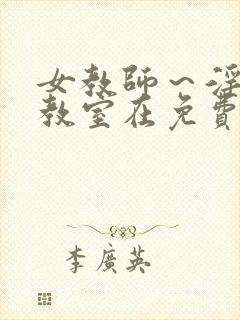 女教師～淫
教室在免費
李廣英